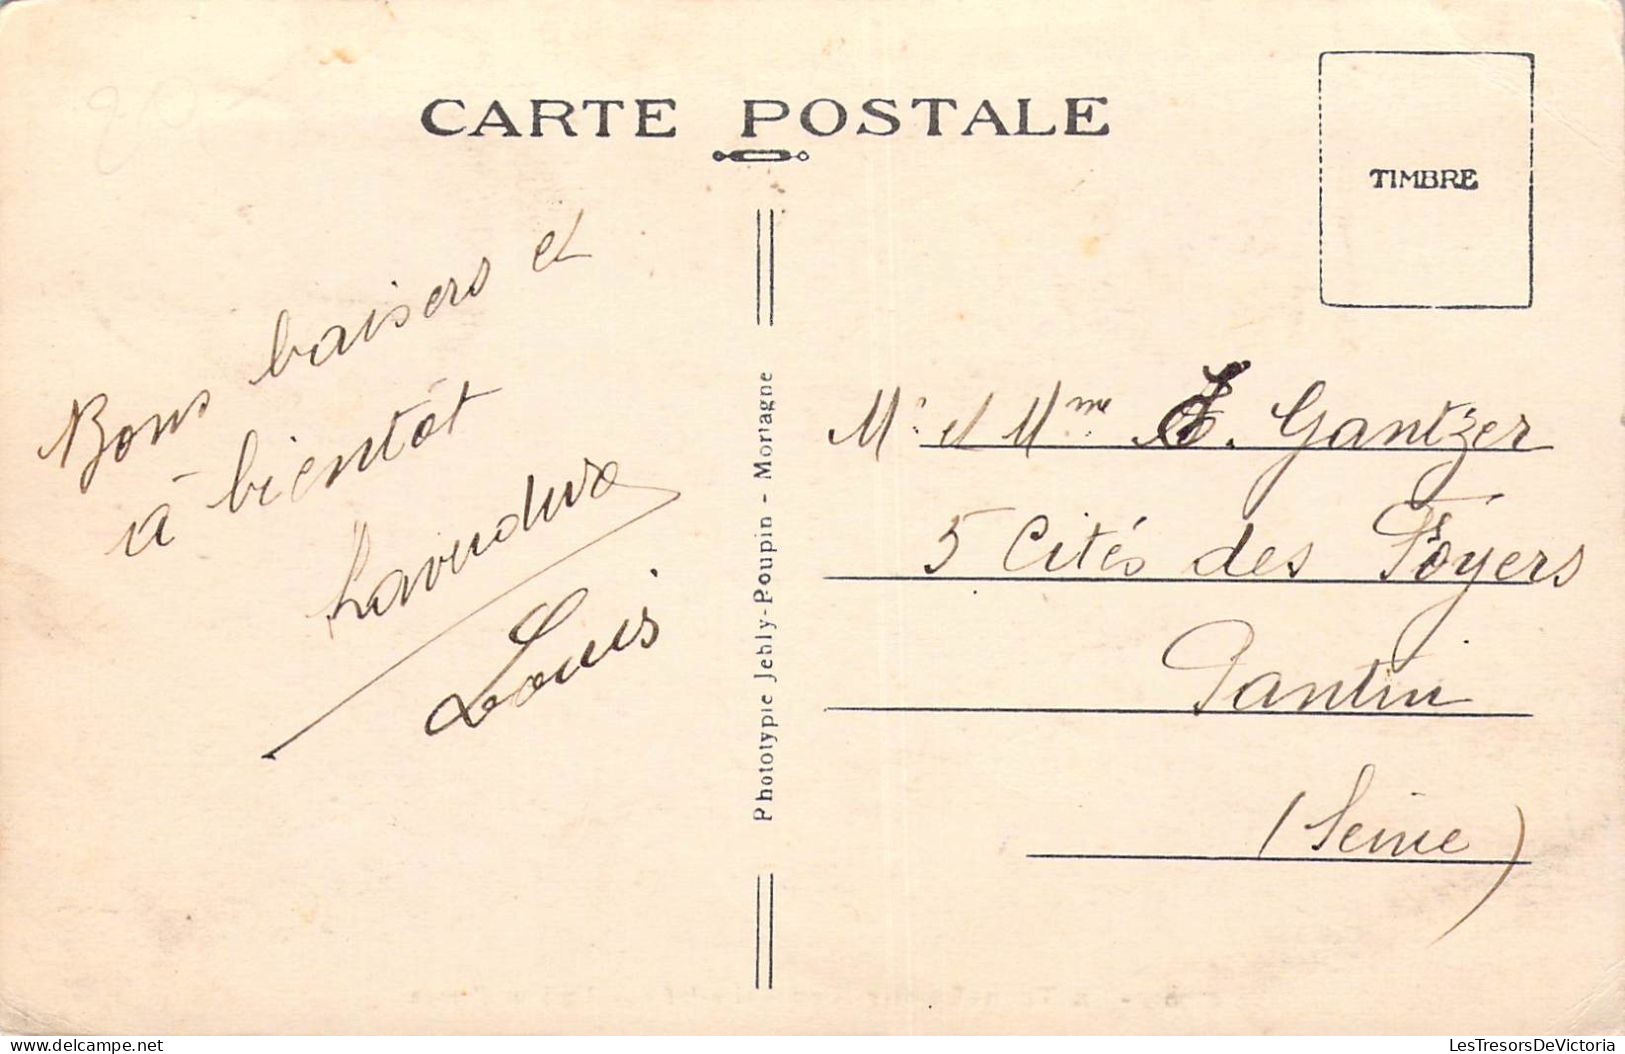 CARTE POSTALE
TIMBRE
Bons baisers et
à bientôt
Louis
Phototypie Jehly-Poupin - Mortagne
Mr et Mme E. Gantzer
5 Cités des Foyers
Pantin
(Seine)
LesTresorsDeVictoria